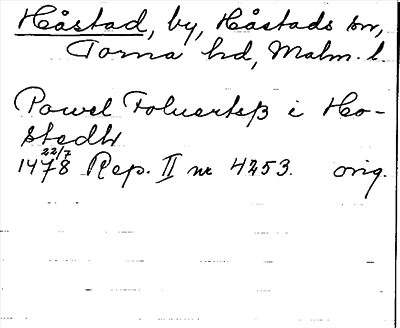 Håstad, by, Håstads sn,
Torna hd, Malm. l.
Powel Foluertsß i Ho-
stedh
22/7
1478 Rep. II nr 4253. orig.